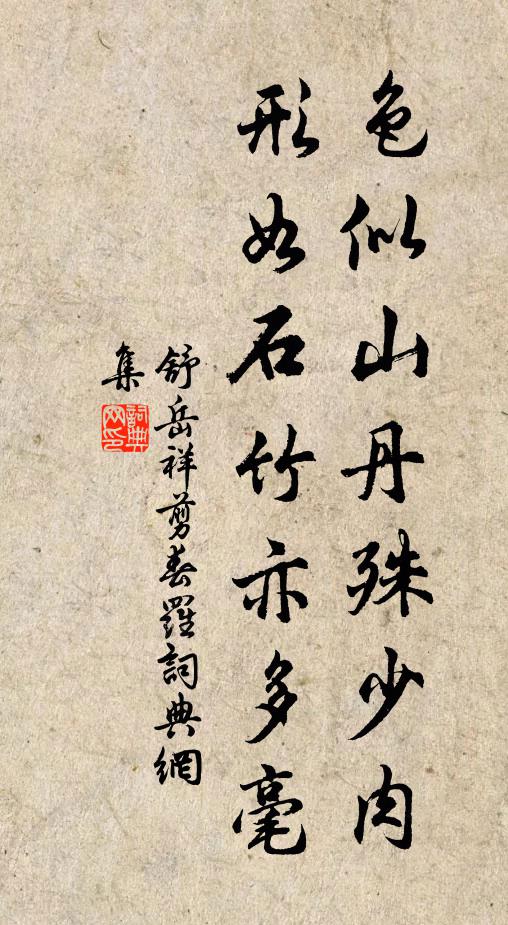 色似山丹殊少肉
形如石竹亦多毫
舒岳祥剪春羅詞典網
集
詞典
网印